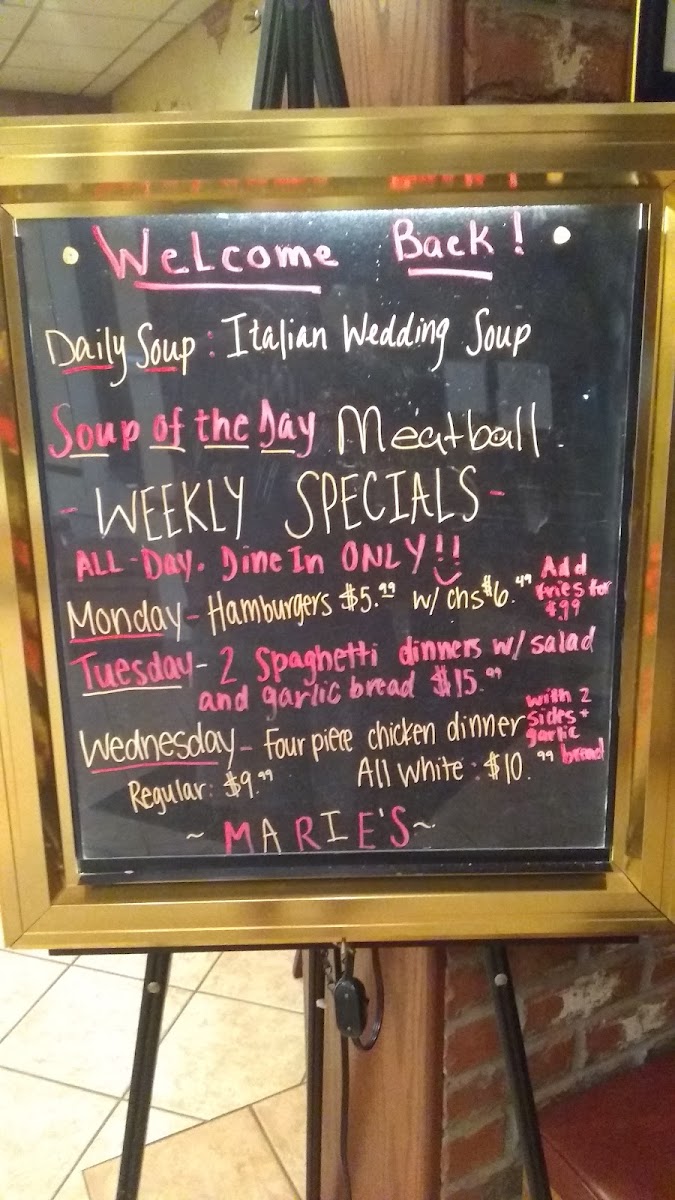 Welcome Back!
Daily Soup: Italian Wedding Soup
Soup of the Day Meatball
- WEEKLY SPECIALS -
ALL-Day. Dine In ONLY!!
Monday - Hamburgers $5.99 w/ chs $6.49 Add fries for $.99
Tuesday - 2 Spaghetti dinners w/ salad
and garlic bread $15.99
Wednesday - Four piece chicken dinner with 2 sides + garlic bread
Regular: $9.99 All White: $10.99
~ MARIE'S ~